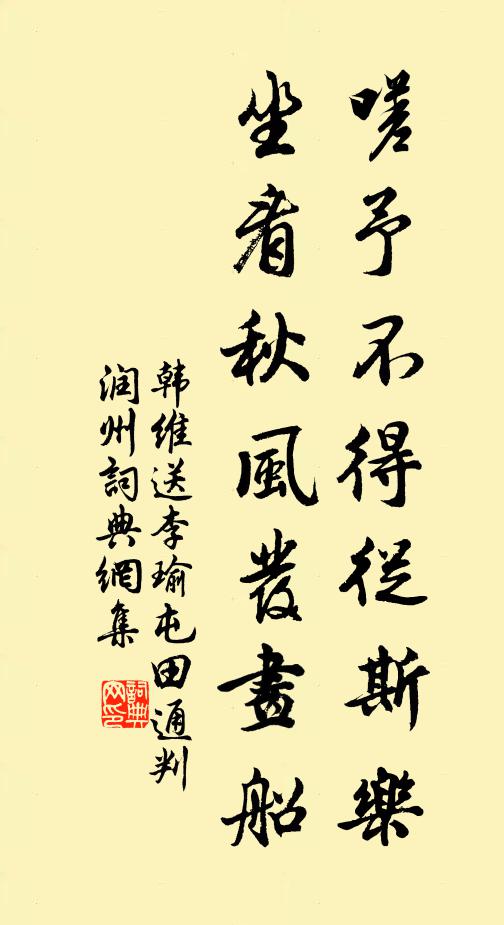 嗟予不得從斯樂
坐看秋風發畫船
韩維送李瑜屯田通判
润州詞典網集
詞典网印